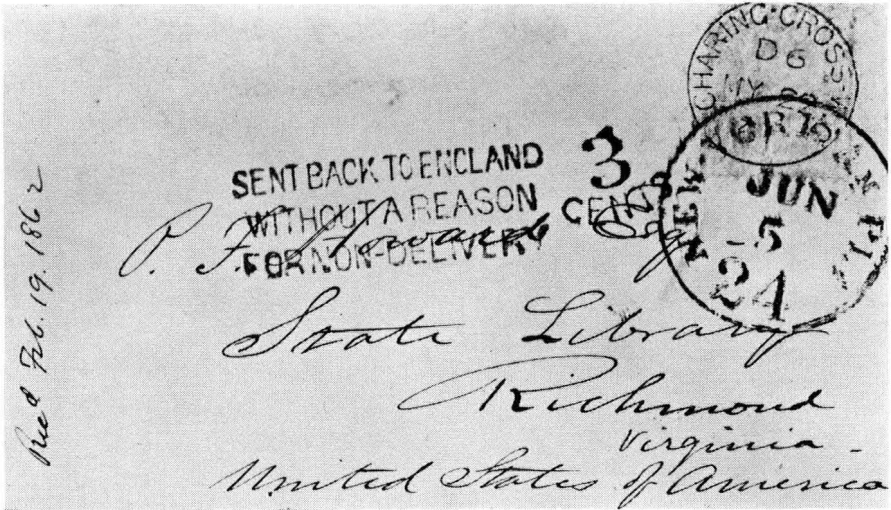 CHARING CROSS
D 6
NEW YORK AM PKT
JUN
5
24
3
CENTS
SENT BACK TO ENGLAND
WITHOUT A REASON
FOR NON-DELIVERY
P. F. Howard Esq
State Library
Richmond
Virginia -
United States of America
Rec'd Feb. 19. 1862